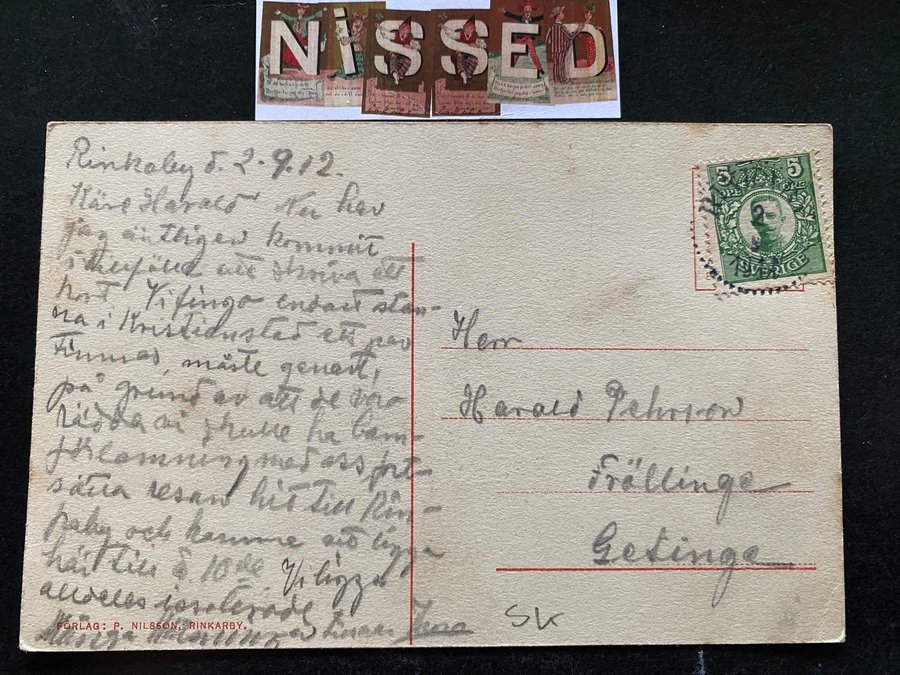 NISSED
Rinkaby d. 2.9.12.
Käre Harald Nu har
jag äntligen kommit
i tillfälle att skriva ett
kort. Vi fingo endast stan-
na i Kristianstad ett par
timmar, måste genast,
på grund av att de voro
rädda vi skulle ha barn-
förlamning med oss, fort-
sätta resan hit till Rin-
kaby och komma att ligga
här till d 10de Vi ligga
alldeles isolerade
Många
FÖRLAG: P. NILSSON, RINKARBY.
5 5
ÖRE
SVERIGE
2
Herr
Harald Pehrson
Frällinge
Getinge
SK